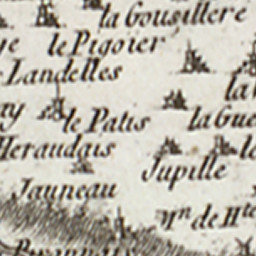 la Gousillere
le Pigoier
Landelles
le Patis
la Gue
Heraudais
Jupille
Jauneau
Mⁿ de Hte